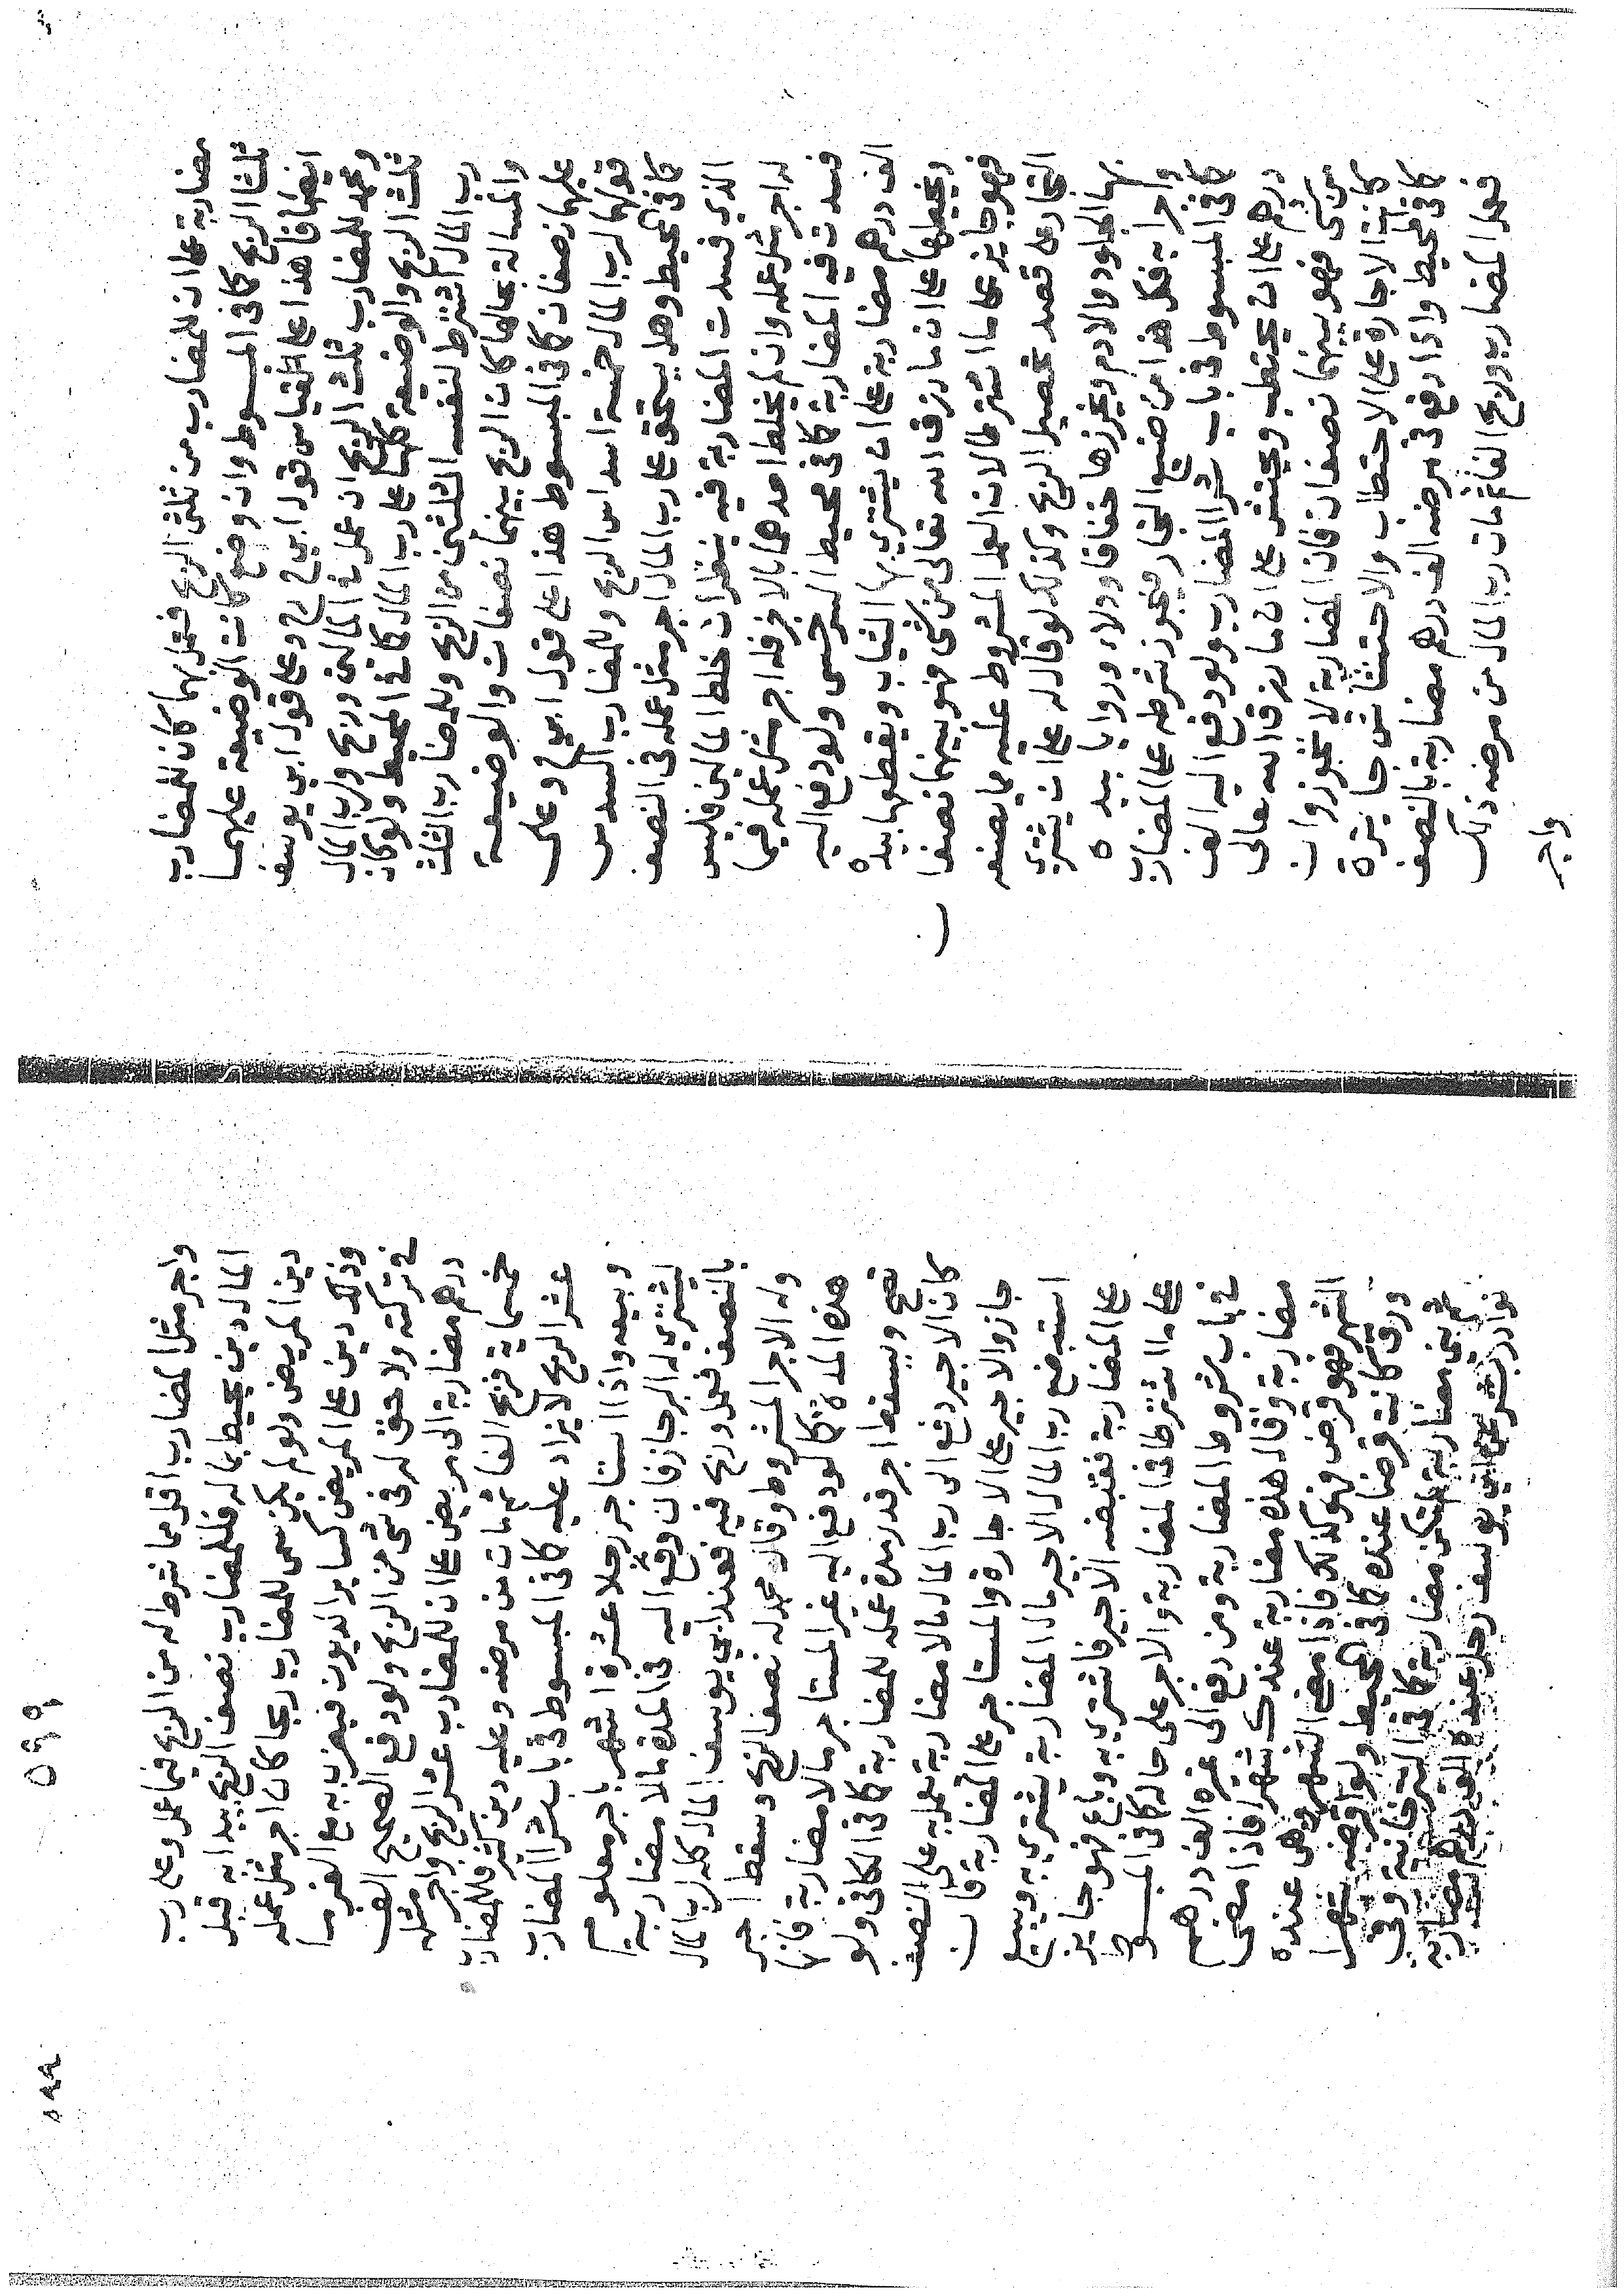 مضاربة على ان للمضارب من ثلثى الربح فعمل بهما كان للمضارب
ثلثا الربح كما فى المبسوط وان وضع كانت الوضيعة عليهما
ايضا فما هذا على القياس قول ابى ح وعلى قول ابى يوسف
ومحمد للمضارب ثلث الربح ان عمل فى المالين وربح ولرب المال
ثلث الربح والوضيعة كلها على رب المال كما فى المحيط ولو كان
رب المال اشترط لنفسه الثلثين من الربح وللمضارب الثلث
والمسالة بحالها كان الربح بينهما نصفان والوضيعة
عليهما نصفان كما فى المبسوط هذا على قول ابى ح وعلى
قولهما لرب المال خمسة اسداس الربح وللمضارب السدس
كما فى المحيط وهل يستحق على رب المال اجر مثل عمله فى النصف
الذى فسدت المضاربة فيه ينظر ان خلط المالين فليس
له اجر مثل عمله وان لم يخلط احدهما بالاخر فله اجر مثل عمله فيما
فسدت فيه المضاربة كما فى محيط السرخسى ولو دفع اليه
الف درهم مضاربة على ان يشترى بها الثياب ويقطعها بيده
ويخيطها على ان ما رزق الله تعالى من شى فهو بينهما نصفا
فهو جايز على ما اشترطا لان العمل المشروط عليه مما يصنعه
التجار على قصد تحصيل الربح وكذلك لو قال له على ان يشترى
بها الجلود والادم ويخرزها خفافا ودلاء وروايا بيده
واجرايه فكل هذا من صنيع التجار فيجوز شرطه على المضارب
كما فى المبسوط فى باب شرا المضارب ولو دفع اليه الف
درهم على ان يحتطب ويحتش على ان ما رزق الله تعالى
من شى فهو بينهما نصفان فان المضاربة لا تجوز وان
كانت الاجارة على الاحتطاب والاحتشاش جايزة
كما فى المحيط واذا دفع فى مرضه الف درهم مضاربة بالنصف
فعمل المضارب وربح الفا ثم مات رب المال من مرضه ذلك
واجر
٥٩٩
واجر مثل المضارب اقل مما شرط له من الربح فيما عمل وعلى رب
المال دين يحيط بماله فللمضارب نصف الربح يبدا به قبل
دين المريض ولو لم يكن سمى للمضارب ربحا كان اجر مثل عمله
وذلك دين على المريض كساير الديون فيضرب به مع الغرما
فى تركته ولا حق له فى شى من الربح ولو دفع الصحيح الف
درهم مضاربة الى مريض على ان للمضارب عشر الربح واجر مثله
خمسماية فربح الفا ثم مات من مرضه وعليه دين كثير فللمضارب
عشر الربح لا يزاد عليه كما فى المبسوط فى باب شرا المضارب
وبيعه واذا استاجر رجلا عشرة اشهر باجر معلوم
ليشترى له البز جاز فان دفع اليه فى المدة مالا مضاربة
بالنصف فعمل وربح فيه فعند ابى يوسف المال كله لرب المال
وله الاجر المشروط وقال محمد له نصف الربح وسقط اجر
هذه المدة كما لو دفع اليه غير المستاجر مالا مضاربة فانها
تصح ويسقط اجر قدر مدة عمله للمضاربة كما فى الكافى ولو
كان الاجير دفع الى رب المال مالا مضاربة يعمل به على النصف
جاز والاجير على الاجارة والمستاجر على المضاربة فان
استبضع رب المال الاجير مال المضاربة يشترى به ويبيع
على المضاربة فقبضه الاجير فاشترى به وباع فهو جايز
على ما اشترطا فى المضاربة والاجر على حاله كما فى المبسوط
فى باب شروط المضاربة ومن دفع الى غيره الف درهم
مضاربة وقال هذه مضاربة عندك شهرا فاذا مضى
الشهر فهو قرض فهو كذلك فاذا مضى الشهر وهى عنده
ورق كانت قرضا عنده كما فى المحيط ولو اقرضه شهرا
ثم هى مضاربة لم تكن مضاربة كما فى التترخانية وفى
نوادر بشر عن ابى يوسف رجل عنده الف درهم مضاربة
٥٩٩